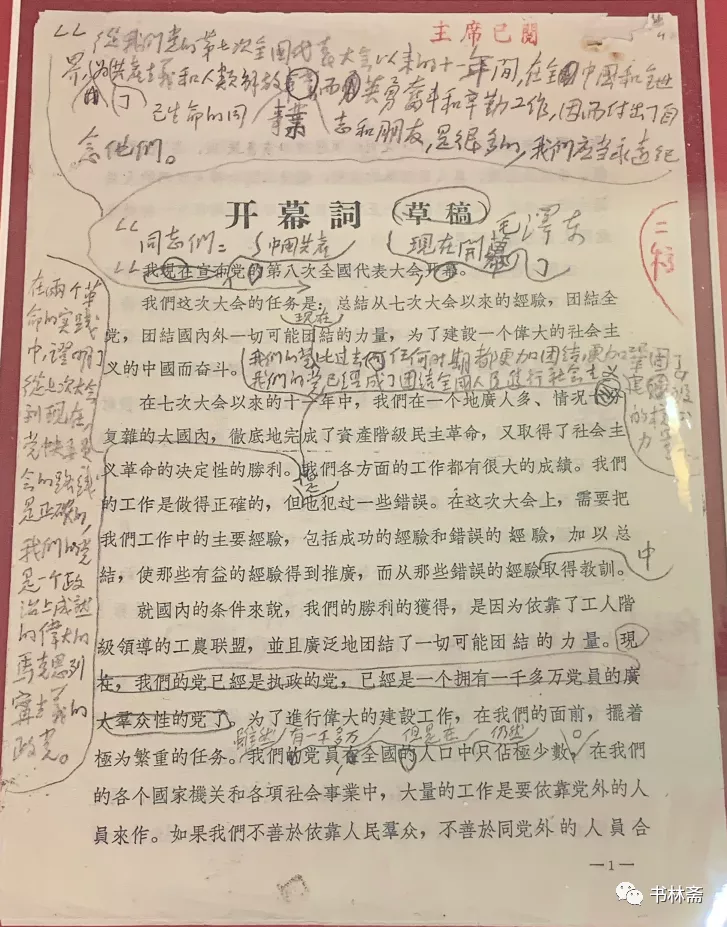 主席已閱
從我們党的第七次全國代表大会以来的十一年間,在全中國和全世
界,为共產主義和人類解放而英勇奮斗和辛勤工作,因而付出了自
己生命的同志和朋友,是很多的,我們应当永遠紀
事業
念他們。
开幕詞(草稿)
毛澤东
同志們:
中國共產
現在開幕了
二稿
我現在宣布党的第八次全國代表大会开幕。
我們这次大会的任务是:总結从七次大会以來的經驗,团結全
党,团結國內外一切可能团結的力量,为了建設一个偉大的社会主
現在
义的中國而奋斗。
我們的党比过去任何时期都更加团結,更加鞏固
我們的党已經成了团結全國人民進行社会主义
建設的核心
力
在七次大会以來的十一年中,我們在一个地廣人多、情况十分
复雜的大國內,徹底地完成了資產階級民主革命,又取得了社会主
义革命的决定性的勝利。我們各方面的工作都有很大的成績。我們
的工作是做得正確的,但也犯过一些錯誤。在这次大会上,需要把
我們工作中的主要經驗,包括成功的經驗和錯誤的經驗,加以总
結,使那些有益的經驗得到推廣,而从那些錯誤的經驗取得教訓。
中
就國內的条件來說,我們的勝利的獲得,是因为依靠了工人階
級領導的工農联盟,並且廣泛地团結了一切可能团結的力量。現
在,我們的党已經是执政的党,已經是一个拥有一千多万党員的廣
大羣众性的党了。为了進行偉大的建設工作,在我們的面前,擺着
雖然 有一千多万 但是在 仍然
極为繁重的任务。我們的党員在全國的人口中只佔極少數,在我們
的各个國家机关和各項社会事業中,大量的工作是要依靠党外的人
員來作。如果我們不善於依靠人民羣众,不善於同党外的人員合
在兩个革
命的实踐
中,證明了
從七次大会
到現在,
党中央委員
会的路線
是正确的,
我們的党
是一个政
治上成熟
的偉大的
馬克思列
寧主義的
政党。
—1—
书林斋